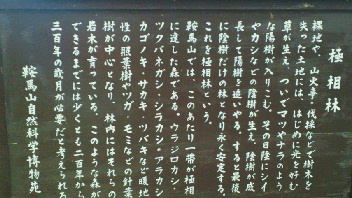 極相林
裸地や、山火事・伐採などで樹木を
失った土地には、はじめに光を好む
草が生え、ついでマツやナラのよう
な陽樹が入りこむ。その日陰にシイ
やカシなどの陰樹が生え、陰樹が成
長して陽樹を追いやる。すると最後
に陰樹だけの林となり永く安定する。
これを極相林という。
鞍馬山では、このあたり一帯が極相
に達した森である。ウラジロガシ・
ツクバネガシ・シラカシ・アラカシ・
カゴノキ・サカキ・ツバキなど暖地
性の照葉樹やツガ・モミなどの針葉
樹が中心となり、林内にはそれらの
若木が育っている。このような森が
できるまでにはいくとも二百年から
三百年の歳月が必要だと考えられる
鞍馬山自然科学博物苑